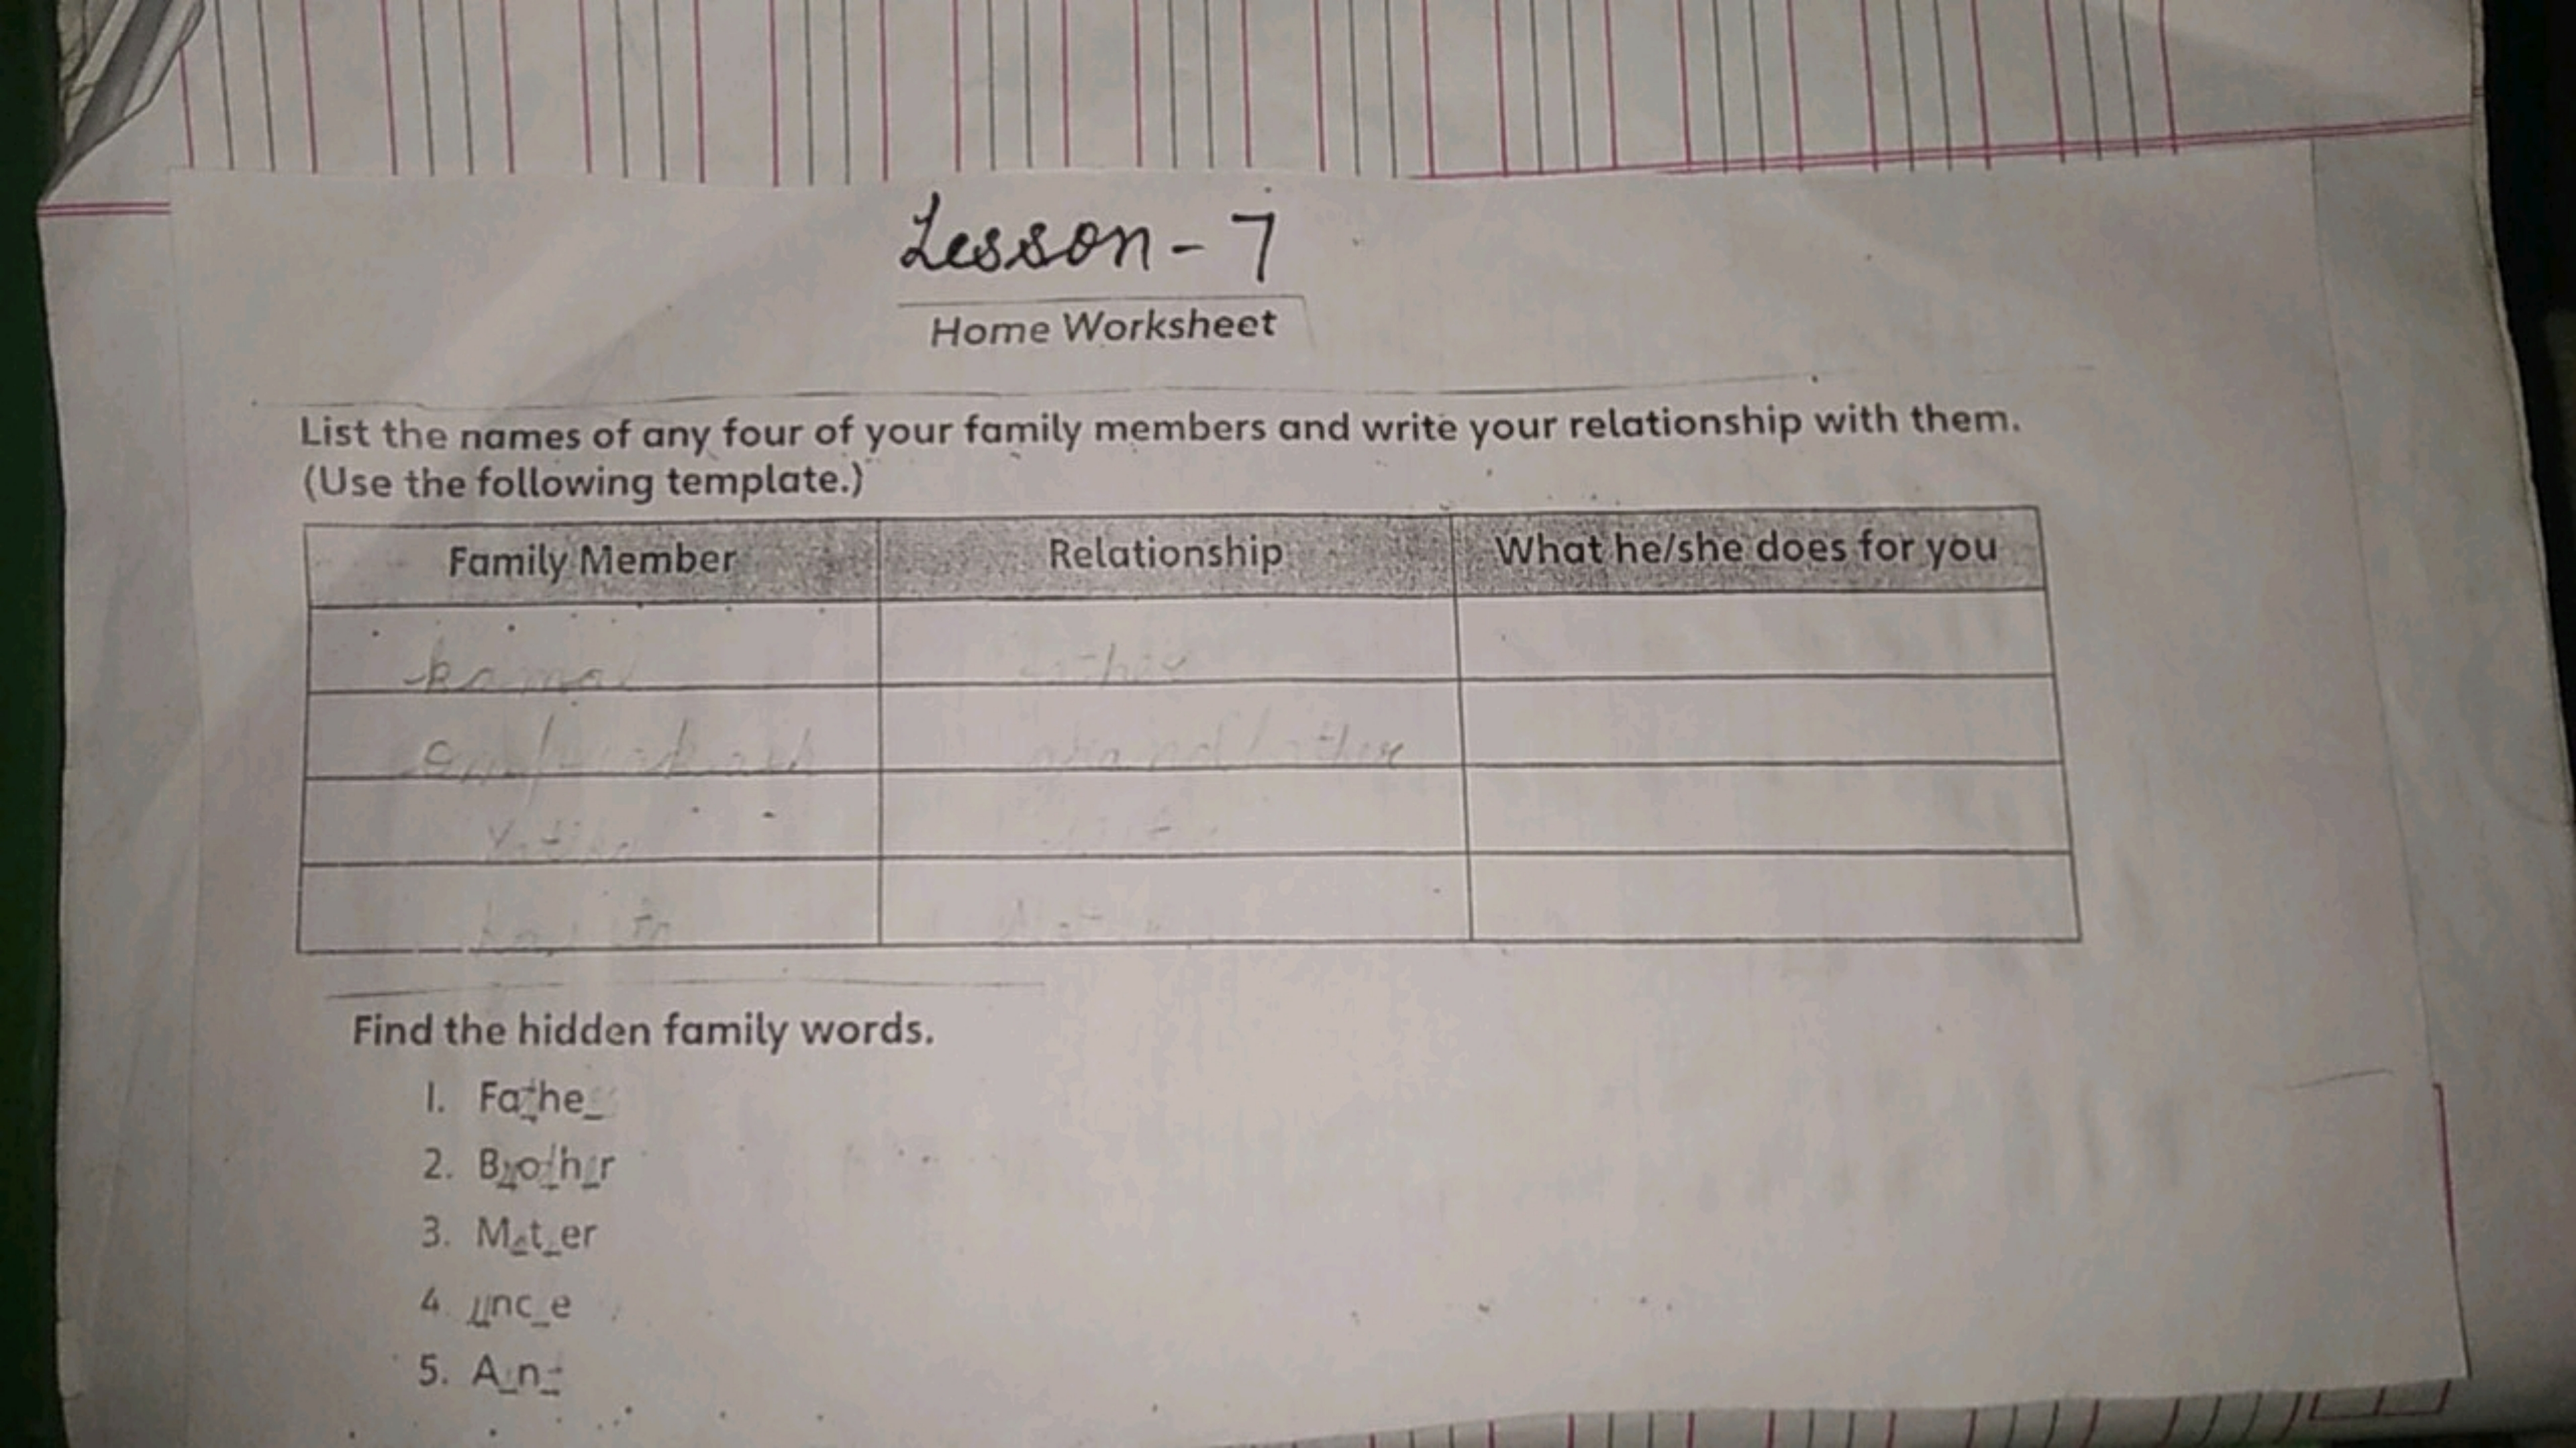 Lesson - 7
Home Worksheet
List the names of any four of your family members and write your relationship with them.
(Use the following template.)
Family Member Relationship What he/she does for you
grandfather
Find the hidden family words.
1. Fathe_
2. Broth_r
3. Mot_er
4. unc_e
5. A_n_